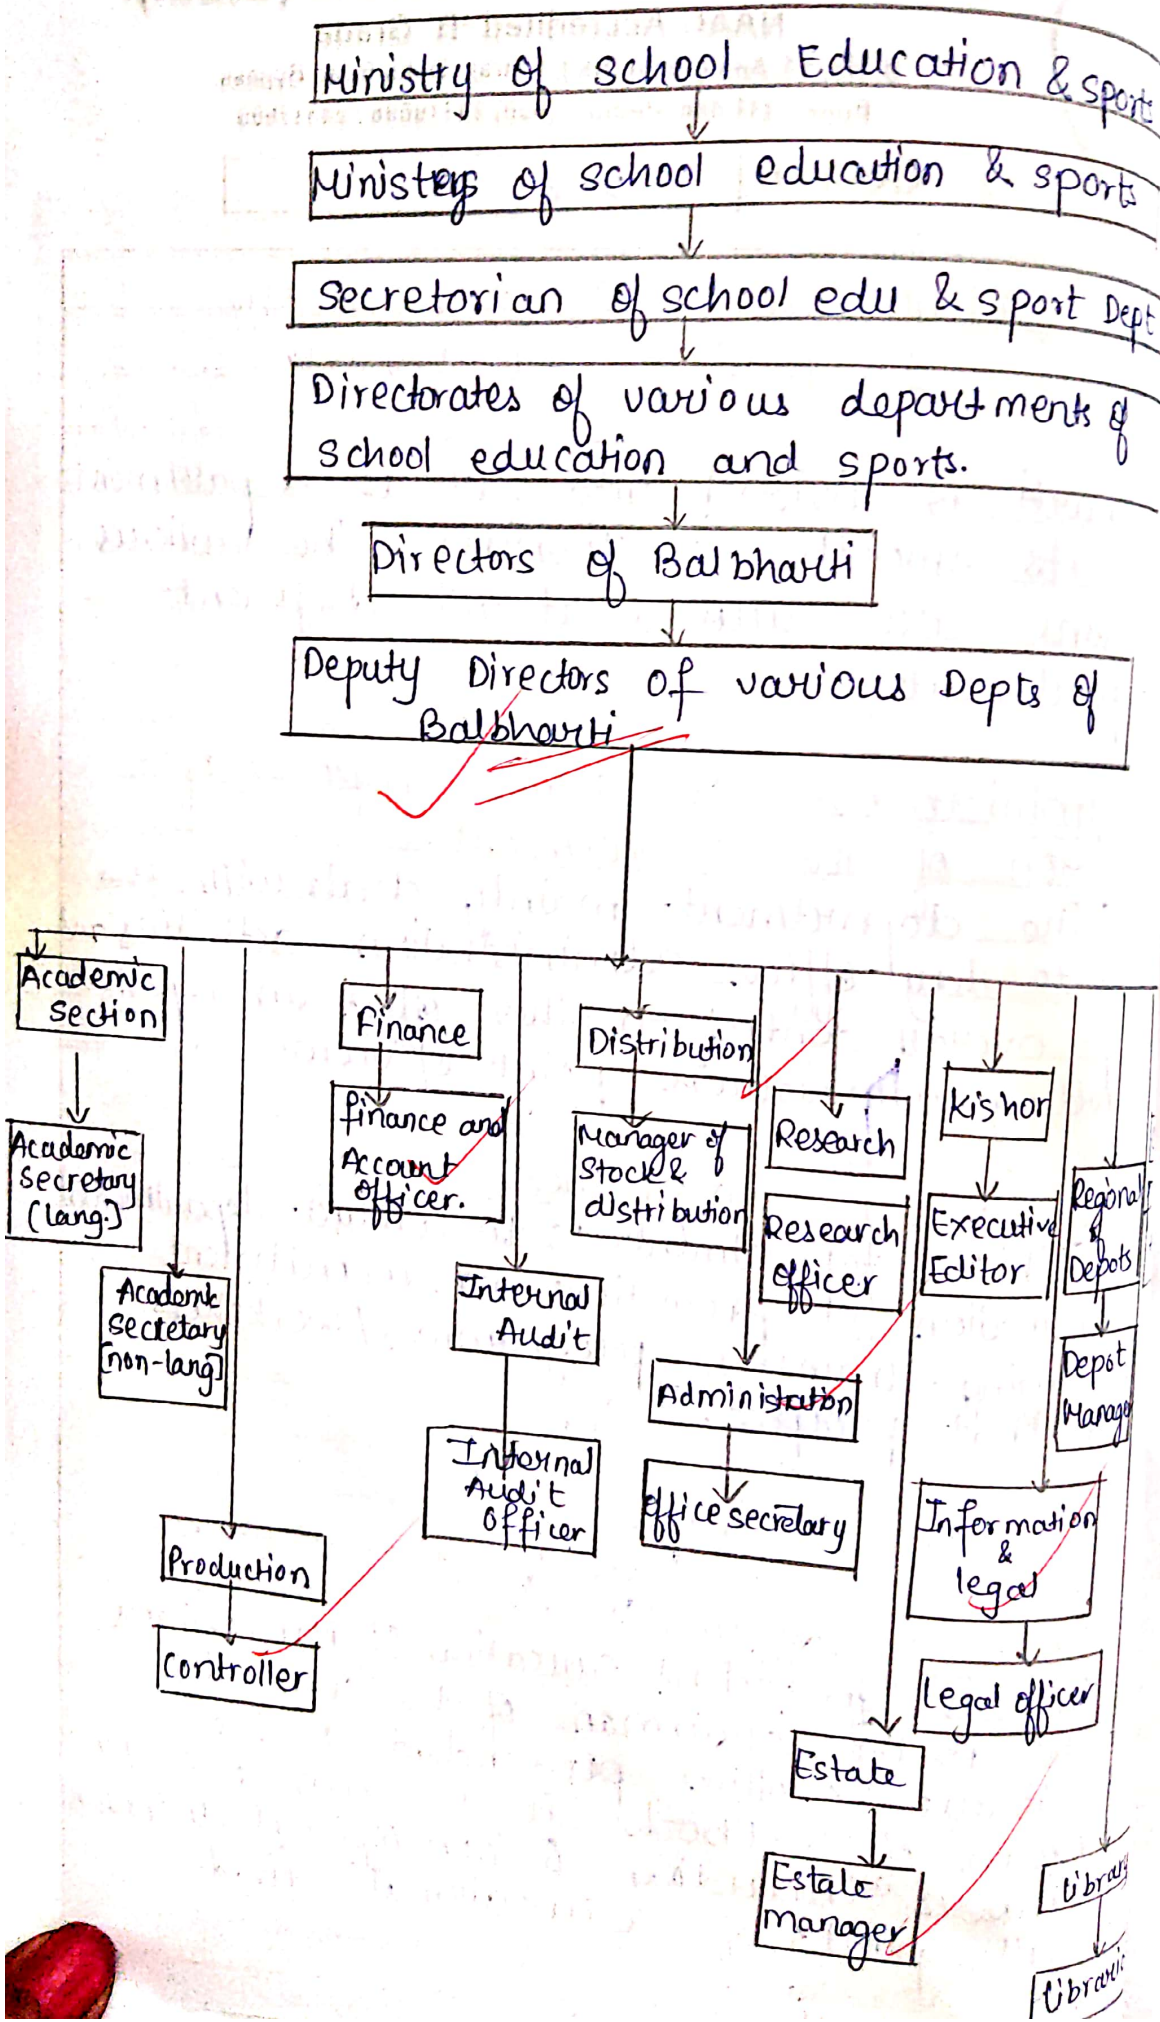 Ministry of school Education & sports
Ministers of school education & sports
Secretorian of school edu & sport Dept
Directorates of various departments of
school education and sports.
Directors of Balbharti
Deputy Directors of various Depts of
Balbharti
Academic
Section
Academic
Secretary
(lang.]
Academic
secretary
[non-lang]
Production
Controller
Finance
finance and
Account
officer.
Internal
Audit
Internal
Audit
Officer
Distribution
Manager of
Stock &
distribution
Administration
Office secretary
Research
Research
officer
Kishor
Executive
Editor
Regional
of
Depots
Depot
Manage
Information
&
legal
Legal officer
Estate
Estate
manager
Library